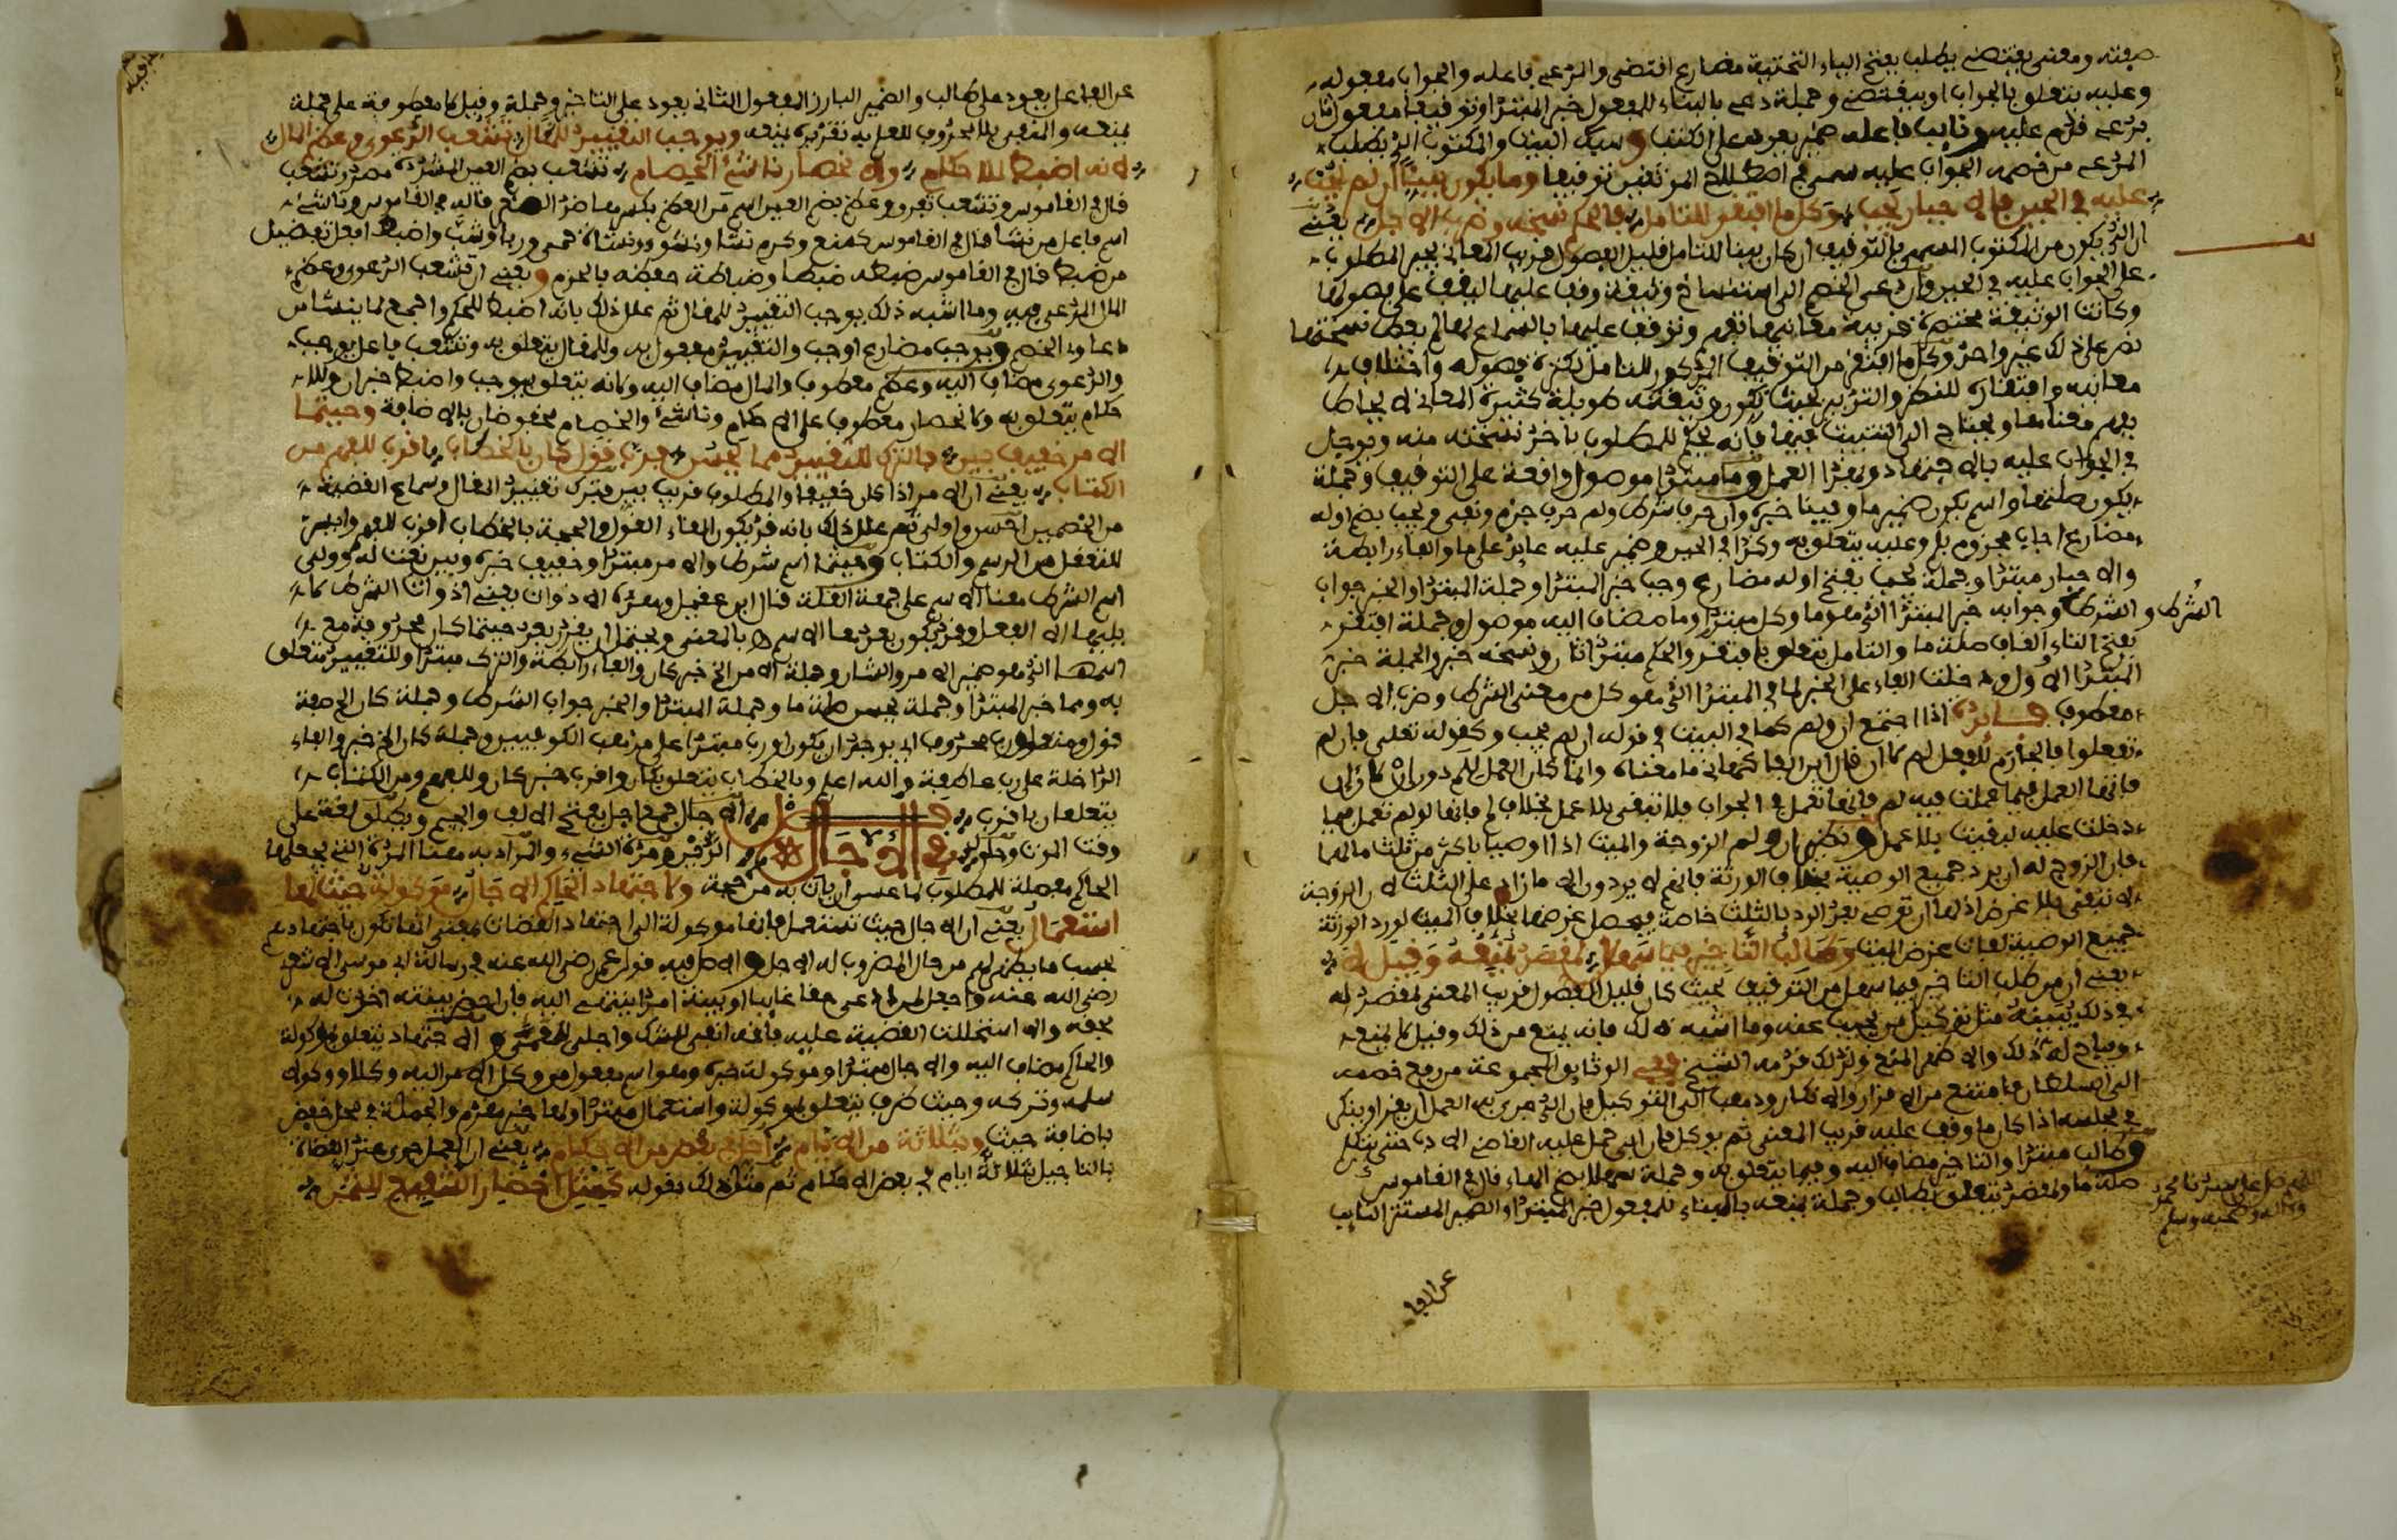 صيغته ومعنى يقتضي يطلب بفتح الياء التحتية مضارع اقتضى والمدعي فاعله والجواب مفعوله
وعليه يتعلق بالجواب او بيقتضي وجملة دعي بالبناء للمفعول خبر المبتدا وتوقيفا مفعول ثان
بدعي قدم عليه ونايب فاعله ضمير يعود على الكتب وسبك البيت والمكتوب الذي يطلب
المدعي من خصمه الجواب عليه سمي في اصطلاح الموثقين توقيفا وما يكون بينا ان لم يجب
عليه في الحين فالاجبار يجب وكل ما افتقر للتامل فالحكم نسخه وضرب الاجل يعني
ان الذي يكون من المكتوب المسمى بالتوقيف ان كان بينا للتامل قليل الفصول قريب المعاني يجبر المطلوب
على الجواب عليه في الحين وان دعى الخصم الى استنساخ وثيقة وقف عليها ليقف على فصولها
وكانت الوثيقة مختصرة قريبة معانيها تفهم وتوقف عليها بالسماع لها لم يعط نسختها
نص على ذلك غير واحد وكل ما افتقر من التوقيف المذكور للتامل لكثرة فصوله واختلاف
معانيه وافتقاره للنظر والتدبر بحيث تكون وثيقته طويلة كثيرة المعاني لا يحاط
بفهم معناها ويحتاج الى التثبت فيها فانه يحكم للمطلوب باخذ نسخته منه ويوجل
في الجواب عليه بالاجتهاد وبهذا العمل وما مبتدا موصول واقعة على التوقيف وجملة
يكون صلتها واسم يكون ضمير ما وبينا خبره وان حرف شرط ولم حرف جزم ونفي ويجب بضم اوله
مضارع اجاب مجزوم بلم وعليه يتعلق به وكذا في الحين وضمير عليه عايد على ما والفاء رابطة
والاجبار مبتدا وجملة يجب بفتح اوله مضارع وجب خبر المبتدا وجملة المبتدا والخبر جواب
الشرط والشرط وجوابه خبر المبتدا الذي هو ما وكل مبتدا وما مضاف اليه موصول وجملة افتقر
بفتح التاء والقاف صلة ما والتامل يتعلق بافتقر والحكم مبتدا ثان ونسخه خبر والجملة خبر
المبتدا الاول ودخلت الفاء على الخبر لما في المبتدا الذي هو كل من معنى الشرط وضرب الاجل
معطوف فايدة اذا اجتمع ان ولم كما في البيت في قوله ان لم يجب وكقوله تعلى فان لم
تفعلوا فالجازم للفعل لم
دخلت عليه لبقيت بلا عمل ونظير ان ولم الزوجة والميت اذا اوصيا باكثر من ثلث مالهما
فان الزوج له ان يرد جميع الوصية بخلاف الورثة فانهم لا يردون الا ما زاد على الثلث لان الزوجة
لا تبقى بلا غرض اذ لها ان توصي بعد الرد بالثلث خاصة فيحصل غرضها بخلاف الميت لو رد الورثة
جميع الوصية لفات غرض الميت وطالب التاخير فيما سهلا لمقصد يمنعه وقيل لا
يعني ان من طلب التاخير فيما سهل من التوقيف بحيث كان قليل الفصول قريب المعنى لمقصد له
في ذلك يبينه مثل توكيل من يجيب عنه وما اشبه ذلك فانه يمنع من ذلك وقيل لا يمنع
ويباح له ذلك والاظهر المنع ولذلك قدمه الشيخ وفي الوثايق المجموعة من رفع خصمه
الى السلطان فامتنع من الاقرار والانكار وذهب الى التوكيل فان الذي جرى به العمل ان يقر او ينكر
في مجلسه اذا كان ما وقف عليه قريب المعنى ثم يوكل فان ابى حمل عليه القاضي الادب حتى يتكلم
وطالب مبتدا والتاخير مضاف اليه وفيما يتعلق به وجملة سهلا بضم الهاء قال في القاموس
صلة ما ولمقصد يتعلق بطالب وجملة يمنعه بالبناء للمفعول خبر المبتدا والضمير المستتر النايب
اللهم صل على سيدنا محمد
وءاله وصحبه وسلم
عن الفا
عن الفاعل يعود على طالب والضمير البارز المفعول الثاني يعود على التاخير وجملة وقيل لا معطوفة على جملة
يمنعه والمنفي بلا محذوف للعلم به تقديره يمنعه ويوجب التقييد للمقال تشعب الدعوى وعظم المال
لانه اضبط للاحكام ولانحصار ناشئ الخصام تشعب بضم العين المشددة مصدر تشعب
قال في القاموس وتشعب تفرق وعظم بضم العين اسم من العظم بكسرها ضد الصغر قاله في القاموس وناشئ
اسم فاعل من نشا قال في القاموس كمنع وكرم نشا ونشوا ونشاة حيي وربا وشب واضبط افعل تفضيل
من ضبط قال في القاموس ضبطه ضبطا وضباطة حفظه بالحزم ويعني ان تشعب الدعوى وعظم
المال المدعى فيه وما اشبه ذلك يوجب التقييد للمقال ثم علل ذلك بانه اضبط للحكم واجمع لما ينشا من
دعاوى الخصم ويوجب مضارع اوجب والتقييد مفعول به وللمقال يتعلق به وتشعب فاعل يوجب
والدعوى مضاف اليه وعظم معطوف والمال مضاف اليه ولانه يتعلق بيوجب واضبط خبر ان وللا
حكام يتعلق به ولانحصار معطوف على الاحكام وناشئ والخصام مخفوضان بالاضافة وحيثما
الامر خفيف بين فالترك للتقييد مما يحسن فرب قول كان بالخطاب اقرب للفهم من
الكتاب يعني ان الامر اذا كان خفيفا والمطلوب قريب بين فترك تقييد المقال وسماع القضية
من الخصمين احسن واولى ثم علل ذلك بانه قد يكون القاء القول والحجة بالخطاب اقرب للفهم وايسر
للتعقل من الرسم والكتاب وحيثما اسم شرط والامر مبتدا وخفيف خبره وبين نعت له
به ومما خبر المبتدا وجملة يحسن صلة ما وجملة المبتدا والخبر جواب الشرط وجملة كان الخ صفة
الداخلة على رب عاطفة والله اعلم وبالخطاب يتعلق بكان واقرب خبر كان وللفهم ومن الكتاب
يتعلقان باقرب فصل الاجال جمع اجل بفتح الالف والجيم ويطلق لغة على
في الاجال
الحاكم مهملة للمطلوب لما عسى ان ياتي به من حجة ولاجتهاد الحاكم الاجال موكولة حيث لها
استعمال يعني ان الاجال حيث تستعمل فانها موكولة الى اجتهاد القضات بمعنى انها تكون باجتهادهم
بحسب ما يظهر لهم من حال المضروب له الاجل والاصل فيه قول عمر رضي الله عنه في رسالته لابي موسى الاشعري
رضي الله عنه واجعل لمن ادعى حقا غايبا او بينة امدا ينتهي اليه فان احضر بينته اخذت له
بحقه والا استحللت القضية عليه فانه انفى للشك واجلى للعمى والاجتهاد يتعلق بموكولة
والحاكم مضاف اليه والاجال مبتدا وموكولة خبره وهو اسم مفعول من وكل الامر اليه وكلا ووكولا
سلمه وتركه وحيث ظرف يتعلق بموكولة واستعمال مبتدا ولها خبر مقدم والجملة في محل خفض
باضافة حيث وبثلاثة من الايام اجل في بعض من الاحكام يعني ان العمل جرى عند القضاة
بالتاجيل بثلاثة ايام في بعض الاحكام ثم مثل ذلك بقوله كمثل احضار الشفيع للثمن